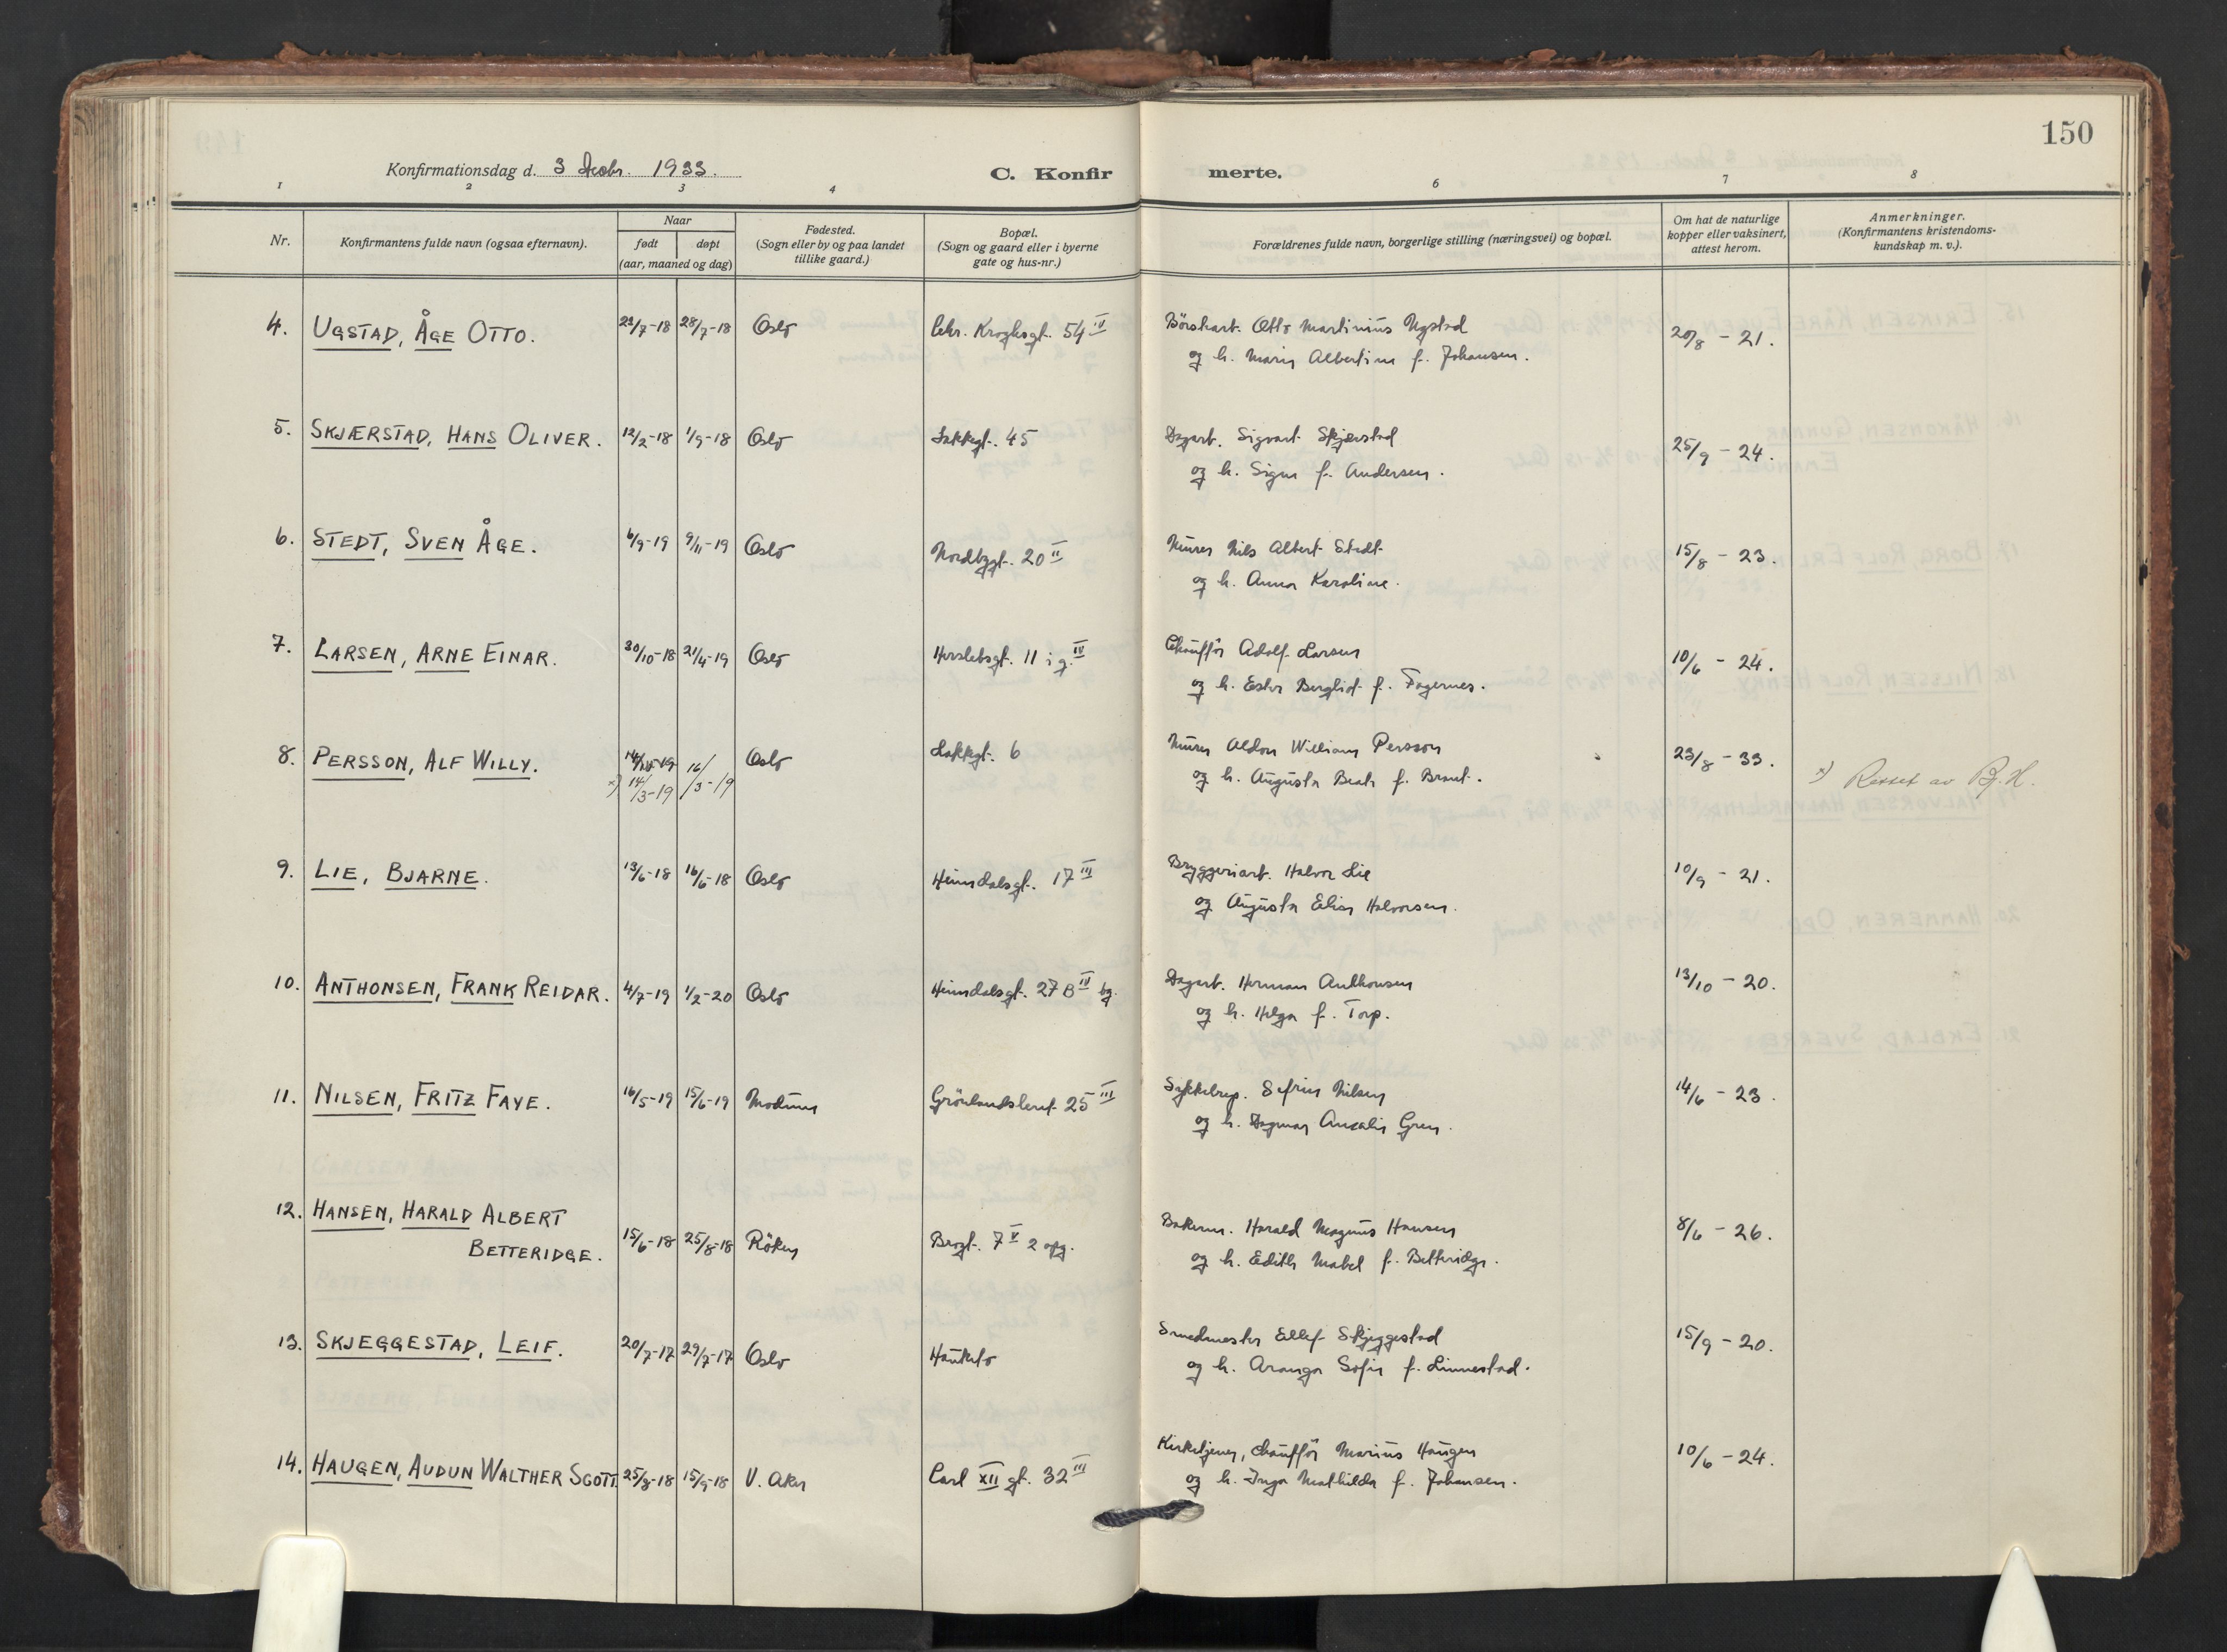 150
Konfirmationsdag d. 3 Decbr. 1933.
C. Konfirmerte.
1 2 3 4 6 7 8
Nr.
Konfirmantens fulde navn (ogsaa efternavn).
Naar
født døpt
(aar, maaned og dag)
Fødested.
(Sogn eller by og paa landet
tillike gaard.)
Bopæl.
(Sogn og gaard eller i byerne
gate og hus-nr.)
Forældrenes fulde navn, borgerlige stilling (næringsvei) og bopæl.
Om hat de naturlige
kopper eller vaksinert,
attest herom.
Anmerkninger.
(Konfirmantens kristendoms-
kundskap m. v.).
4. UGSTAD, ÅGE OTTO. /7-18 28/7-18 Oslo Chr. Kroghsgt. 54 IV Otto Martinius Ugstad 20/8 - 21.
og h. Marie Albertine f. Johansen.
5. SKJÆRSTAD, HANS OLIVER. 12/2-18 1/9-18 Oslo Lakkgt. 45 Dagarb. Sigvart Skjærstad 25/9 - 24.
og h. Signe f. Andersen.
6. STEDT, SVEN ÅGE. 6/9-19 9/11-19 Oslo Nordbygt. 20 II Murer Nils Albert Stedt 15/8 - 23.
og h. Anna Karoline.
7. LARSEN, ARNE EINAR. 30/10-18 21/4-19 Oslo Herslebsgt. 11 i g. IV Chauffør Adolf Larsen 10/6 - 24.
og h. Ester Bergliot f. Fagernes.
8. PERSSON, ALF WILLY. 16/3-19 Oslo Lakkgt. 6 Murer Aldor William Persson 23/8 - 33.
x) 14/3-19 og h. Augusta Beate f. Brant. x) Rettet av B.H.
9. LIE, BJARNE. 13/6-18 16/6-18 Oslo Heimdalsgt. 17 III Bryggeriarb. Halvor Lie 10/9 - 21.
og Augusta Elise Halvorsen.
10. ANTHONSEN, FRANK REIDAR. 4/7-19 1/2-20 Oslo Heimdalsgt. 27 B IV bg. Dagarb. Herman Anthonsen 13/10 - 20.
og h. Helga f. Torp.
11. NILSEN, FRITZ FAYE. 16/5-19 15/6-19 Modum Grönlandsleret 25 III Sykkelrep. Sefrin Nilsen 14/6 - 23.
og h. Dagmar Gren.
12. HANSEN, HARALD ALBERT
BETTERIDGE. 15/6-18 25/8-18 Röken Brogt. 7 V 2 opg. Bakerm. Harald Magnus Hansen 8/6 - 26.
og h. Edith Mabel f. Betteridge.
13. SKJEGGESTAD, LEIF. 20/7-17 29/7-17 Oslo Hauketo Smedmester Ellef Skjeggestad 15/9 - 20.
og h. Aranga Sofie f. Linnestad.
14. HAUGEN, AUDUN WALTHER SCOTT. 25/8-18 15/9-18 V. Aker Carl XII gt. 32 III Kirketjener, chauffør Marius Haugen 10/6 - 24.
og h. Inga Mathilde f. Johansen.